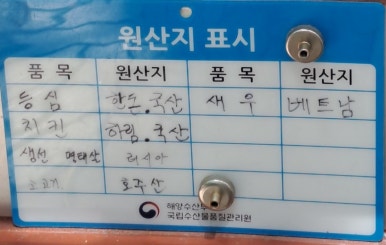 원산지 표시
품 목 원산지 품 목 원산지
등심 한돈.국산 새우 베트남
치킨 하림.국산
생선 명태산 러시아
소고기 호주산
해양수산부
국립수산물품질관리원